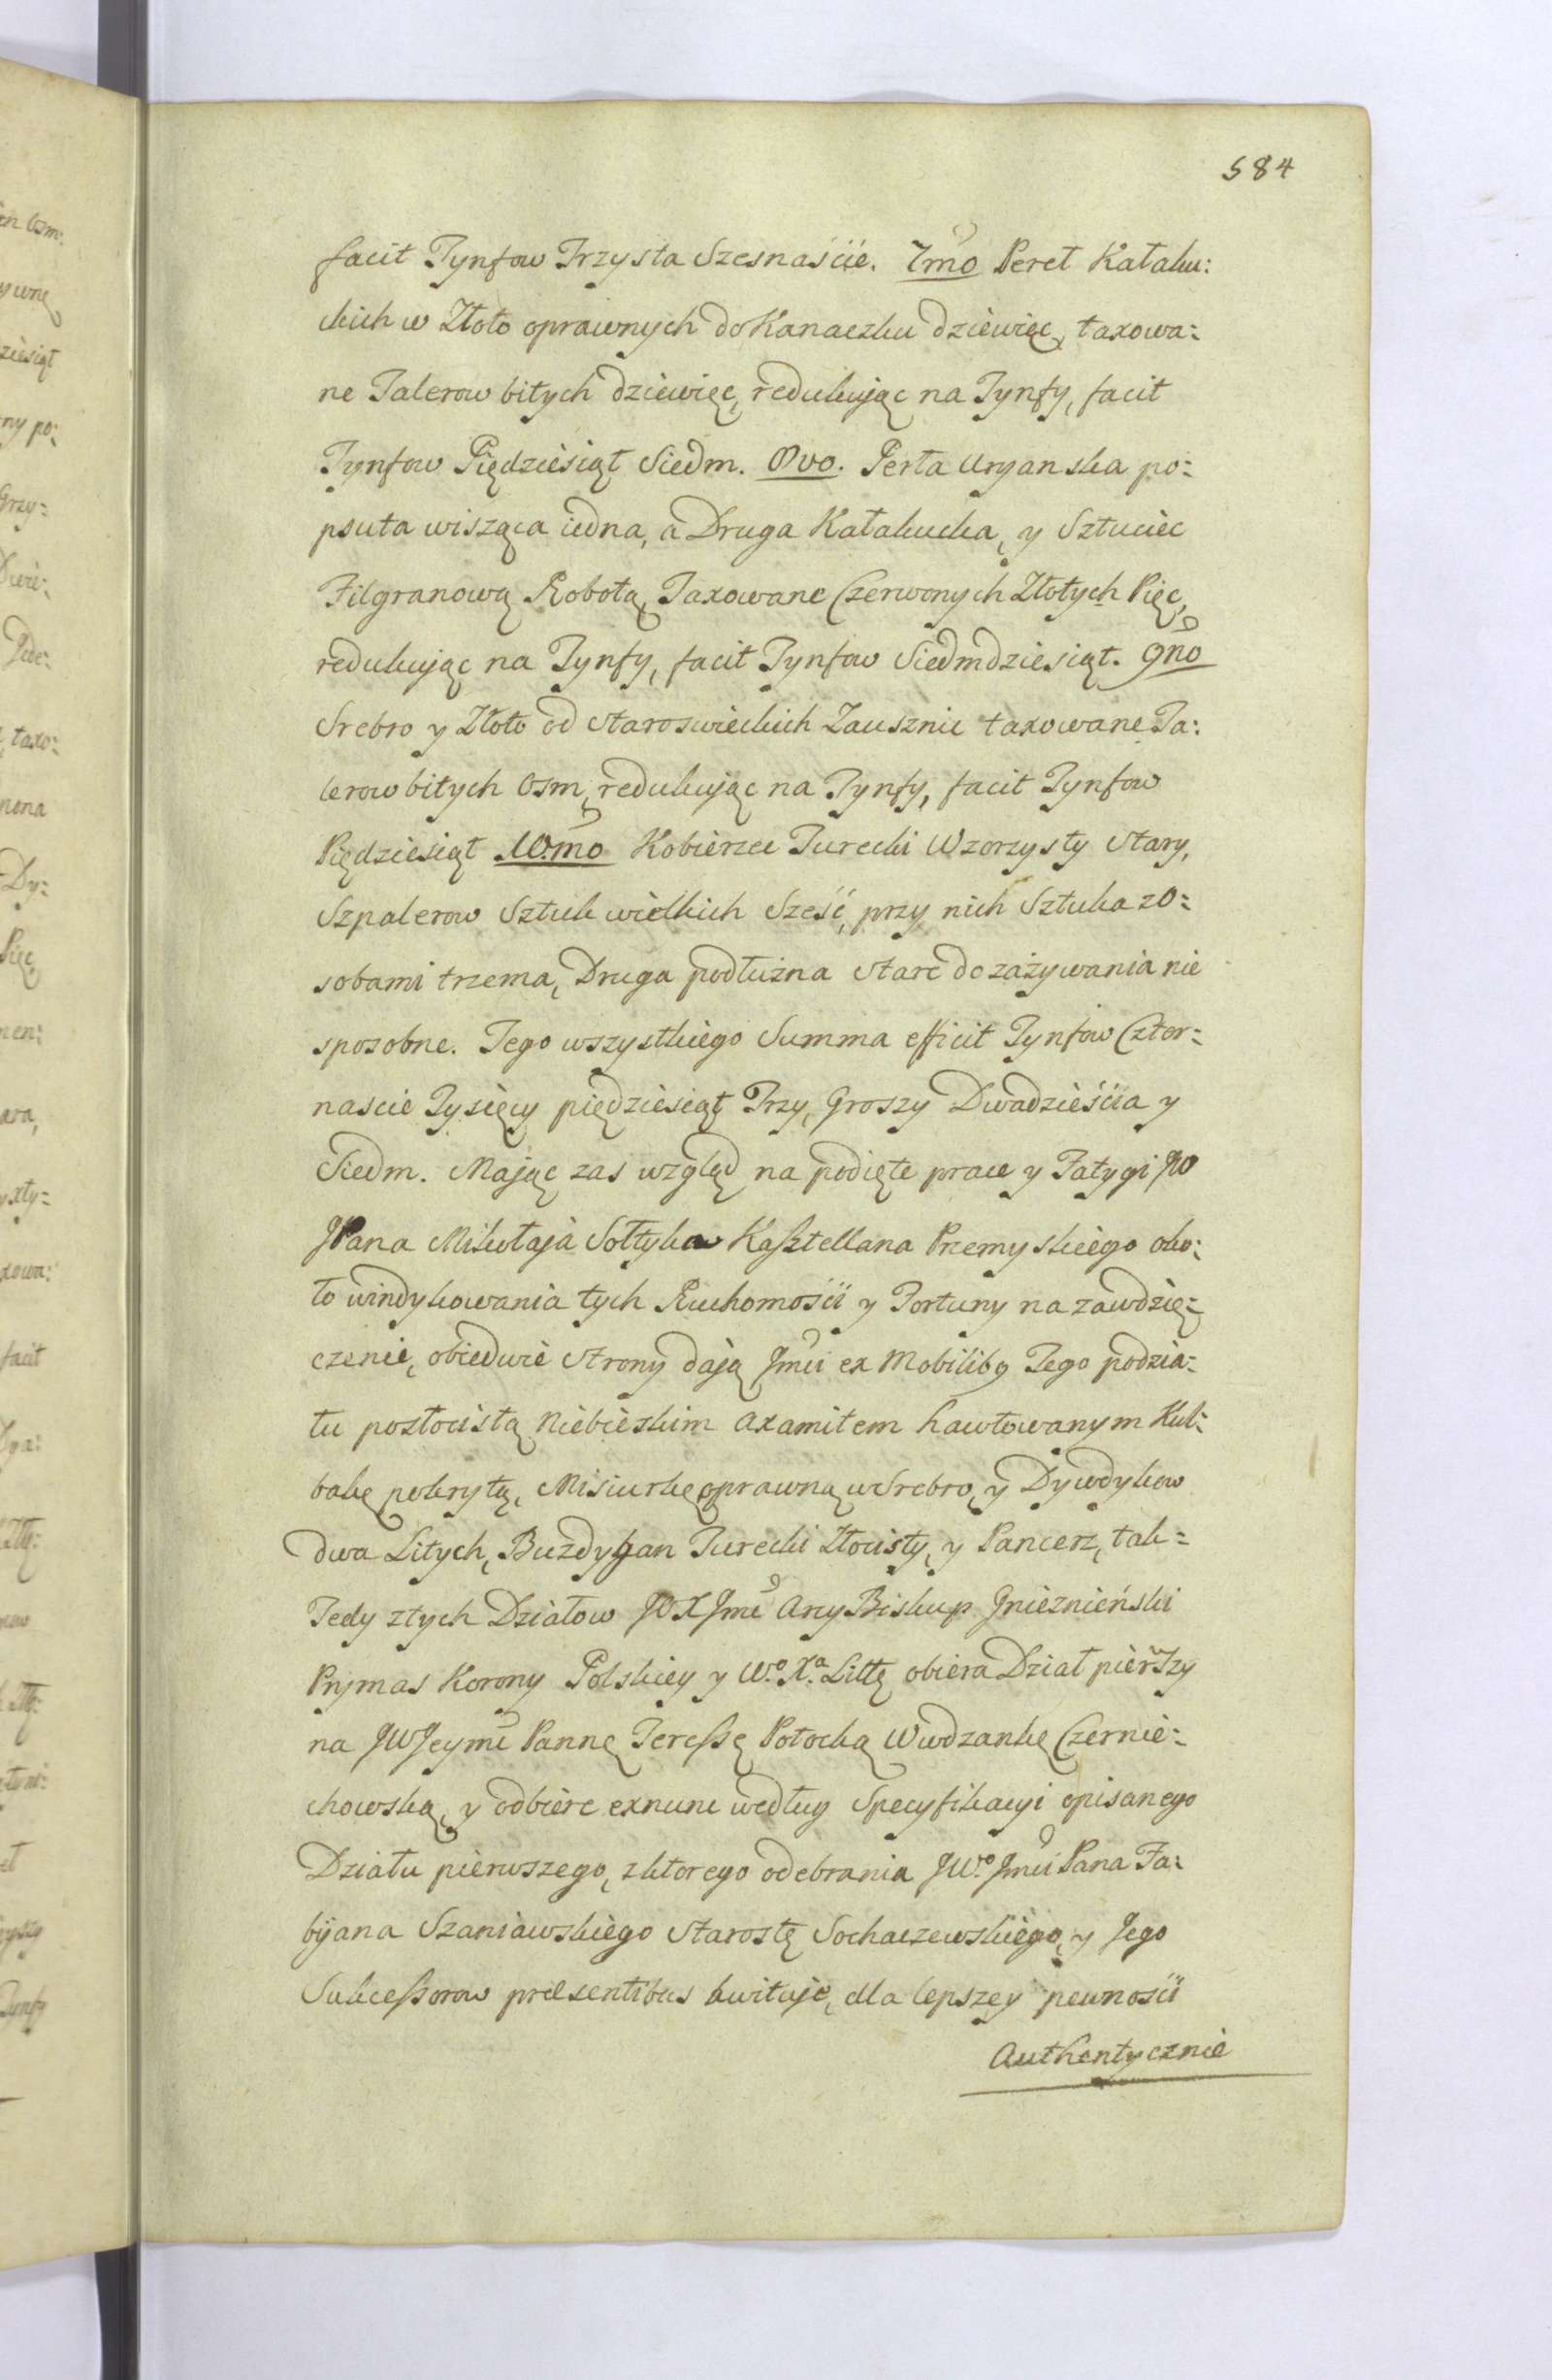 584
facit Tynfow Trzysta Szesnaście. 7mo Pereł Kałaku:
ckich w Złoto oprawnych do Kanaczku dziewięc, taxowa:
ne Talerow bitych dziewięc, redukując na Tynfy, facit
Tynfow Piędziesiąt Siedm. 8vo. Perła Uryanska po:
psuta wisząca iedna, a Druga Kałakucka, y Sztuciec
Filgranową Robotą, Taxowane Czerwonych Złotych Pięc,
redukując na Tynfy, facit Tynfow Siedmdziesiąt. 9no
Srebro y Złoto od staroswieckich Zausznic taxowane Ta:
lerow bitych Osm, redukując na Tynfy, facit Tynfow
Piędziesiąt 10.mo Kobierzec Turecki Wzorzysty stary,
Szpalerow Sztuk wielkich Sześć, przy nich Sztuka z o:
sobami trzema, Druga podłużna stare do zażywania nie
sposobne. Tego wszystkiego Summa efficit Tynfow Czter:
nascie Tysięcy piędziesiąt Trzy, Groszy Dwadzieścia y
Siedm. Mając zas wzgląd na podięte prace y Fatygi JW
JPana Mikołaja Sołtyka Kasztellana Przemyskiego oko:
ło windykowania tych Ruchomości y Fortuny na zawdzię:
czenie, obiedwie strony dają Jmci ex Mobilibg Tego podzia:
łu pozłocistą Niebieskim axamitem hawtowanym Kul:
bakę pokrytą, Misiurkę oprawną w Srebro, y Dywdykow
dwa Litych, Buzdygan Turecki Złocisty, y Pancerz, tak:
Tedy z tych Działow JWXJmć ArcyBiskup Gnieznieński
Prymas Korony Polskiey y W.o X.a Littę obiera Dział pierwszy
na JWJeymć Pannę Teressę Potocką Wwdzankę Czernie:
chowską, y odbiere exnunc według Specyfikacyi opisanego
Działu pierwszego, z ktorego odebrania JW.o Jmci Pana Fa:
bijana Szaniawskiego Starostę Sochaczewskiego, y Jego
Sukcessorow præsentibus kwituje, dla lepszey pewności
Authentycznie